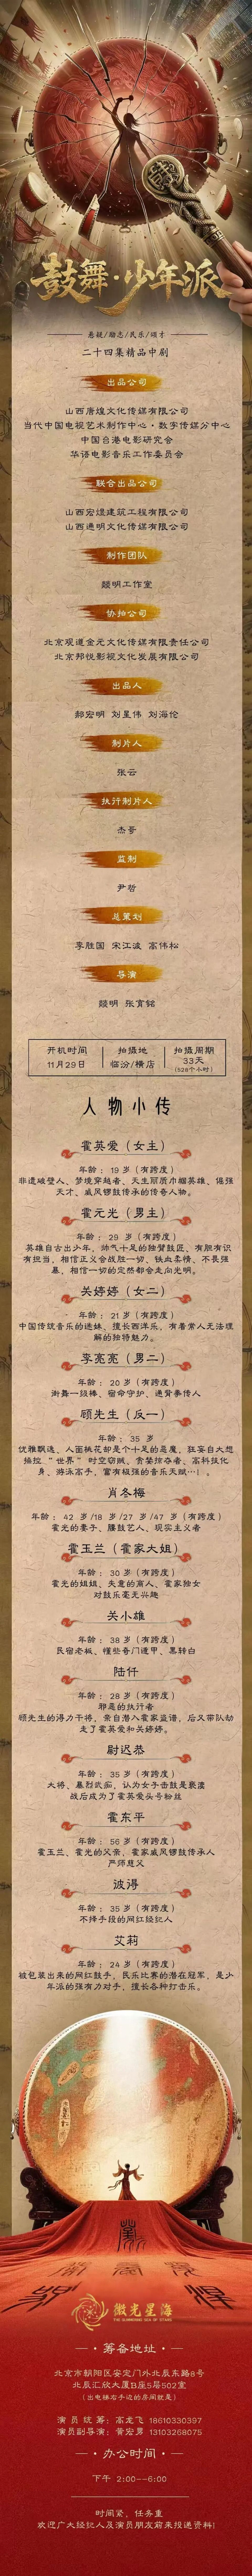 鼓舞·少年派
悬疑/励志/民乐/颂才
二十四集精品中剧
出品公司
山西唐煌文化传媒有限公司
当代中国电视艺术制作中心·数字传媒分中心
中国台港电影研究会
华语电影音乐工作委员会
联合出品公司
山西宏煜建筑工程有限公司
山西通明文化传媒有限公司
制作团队
颢明工作室
协拍公司
北京观道金元文化传媒有限责任公司
北京邦悦影视文化发展有限公司
出品人
郝宏明 刘星伟 刘海伦
制片人
张云
执行制片人
杰哥
监制
尹哲
总策划
李胜国 宋江波 高伟松
导演
颢明 张寅铭
开机时间
11月29日
拍摄地
临汾/横店
拍摄周期
33天
(528个小时)
人物小传
霍英爱(女主)
年龄:19岁(有跨度)
非遗破壁人、梦境穿越者、天生丽质巾帼英雄、倔强
天才、威风锣鼓传承的传奇人物。
霍元光(男主)
年龄:29岁(有跨度)
英雄自古出少年、帅气十足的独臂鼓匠、有胆有识
有担当、相信正义会战胜一切、铁血柔情、不畏强
暴、相信一切的定然都会走向光明。
关婷婷(女二)
年龄:21岁(有跨度)
中国传统音乐的迷妹、擅长西洋乐、有着常人无法理
解的独特魅力。
李亮亮(男二)
年龄:20岁(有跨度)
街舞一级棒、宿命守护、通背拳传人
顾先生(反一)
年龄:35岁
优雅飘逸、人面桃花却是个十足的恶魔、狂妄自大想
操控“世界”时空窃贼、贪婪掠夺者、高科技化
身、游派高手、富有极强的音乐天赋…!。
肖冬梅
年龄:42岁/18岁/27岁/47岁(有跨度)
霍光的妻子、腰鼓艺人、现实主义者
霍玉兰(霍家大姐)
年龄:30岁(有跨度)
霍光的姐姐、失意的商人、霍家独女
对鼓乐毫无兴趣
关小雄
年龄:38岁(有跨度)
民宿老板、懂些奇门遁甲、黑转白
陆仟
年龄:28岁(有跨度)
邪恶的执行者
顾先生的得力干将、亲自潜入霍家盗谱、后又带队劫
走了霍英爱和关婷婷。
尉迟恭
年龄:35岁(有跨度)
大将、暴烈武痴、认为女子击鼓是亵渎
战后成为了霍英爱头号粉丝
霍东平
年龄:56岁(有跨度)
霍玉兰、霍光的父亲、霍家威风锣鼓传承人
严师慈父
波得
年龄:35岁(有跨度)
不择手段的网红经纪人
艾莉
年龄:24岁(有跨度)
被包装出来的网红鼓手、民乐比赛的潜在冠军、是少
年派的强有力对手、擅长各种打击乐。
微光星海
THE GLIMMERING SEA OF STARS
筹备地址
北京市朝阳区安定门外北辰东路8号
北辰汇欣大厦B座5层502室
(出电梯右手边的房间就是)
演员统筹:高龙飞 18610330397
演员副导演:黄宏勇 13103268075
办公时间
下午 2:00--6:00
时间紧、任务重
欢迎广大经纪人及演员朋友前来投递资料!